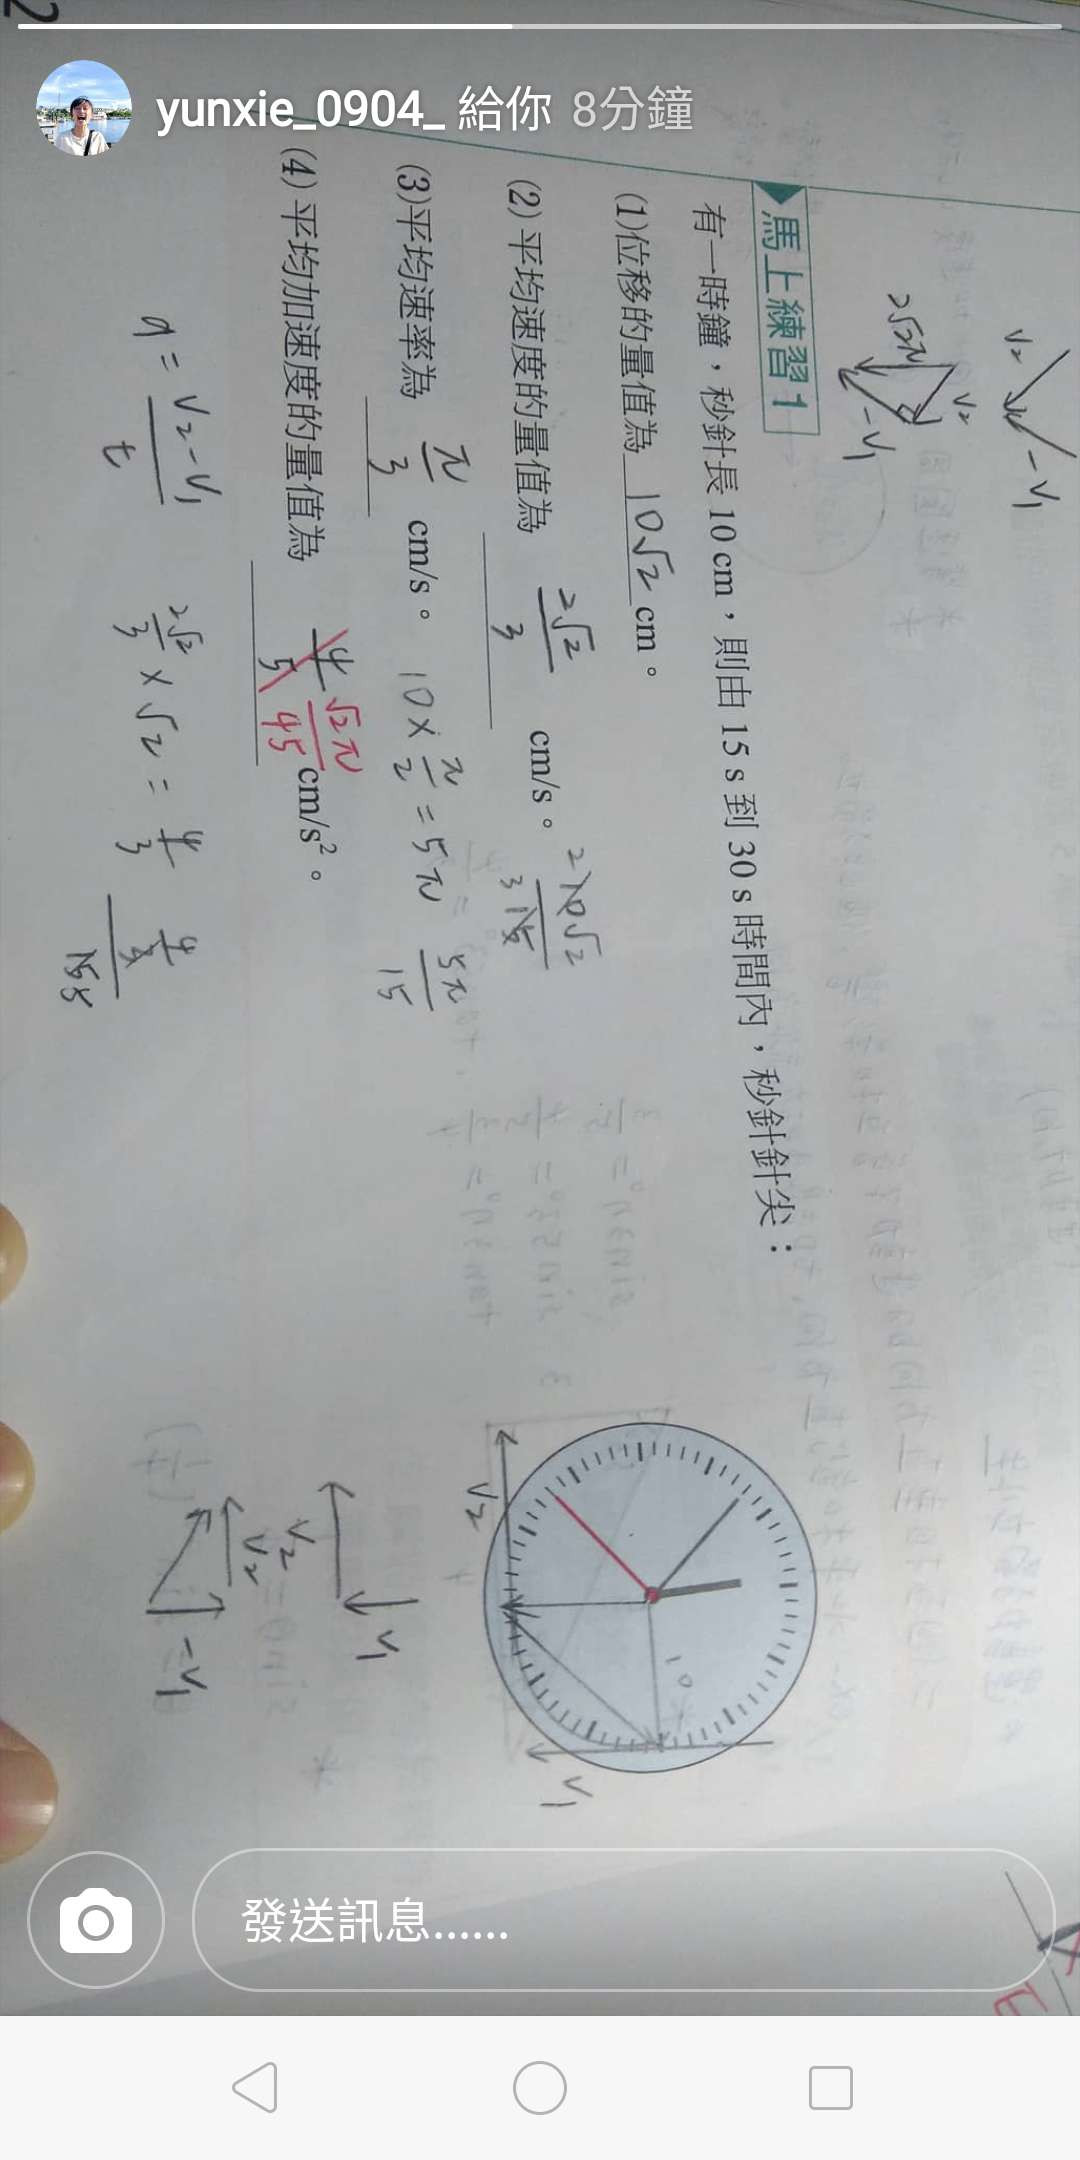 yunxie_0904_ 給你 8分鐘
V₂
-V₁
2√2π
V₂
-V₁
馬上練習1
有一時鐘，秒針長 10 cm，則由 15 s 到 30 s 時間內，秒針針尖：
(1)位移的量值為 10√2 cm。
(2)平均速度的量值為 2√2/3 cm/s。 2 10√2 / 3 15
(3)平均速率為 π/3 cm/s。 10×π/2=5π 5π/15
(4)平均加速度的量值為 4/5 √2π/45 cm/s²。
a = V₂-V₁/t 2√2/3 × √2 = 4/3
10
V₁
V₂
V₁
V₂
V₂
-V₁
發送訊息......